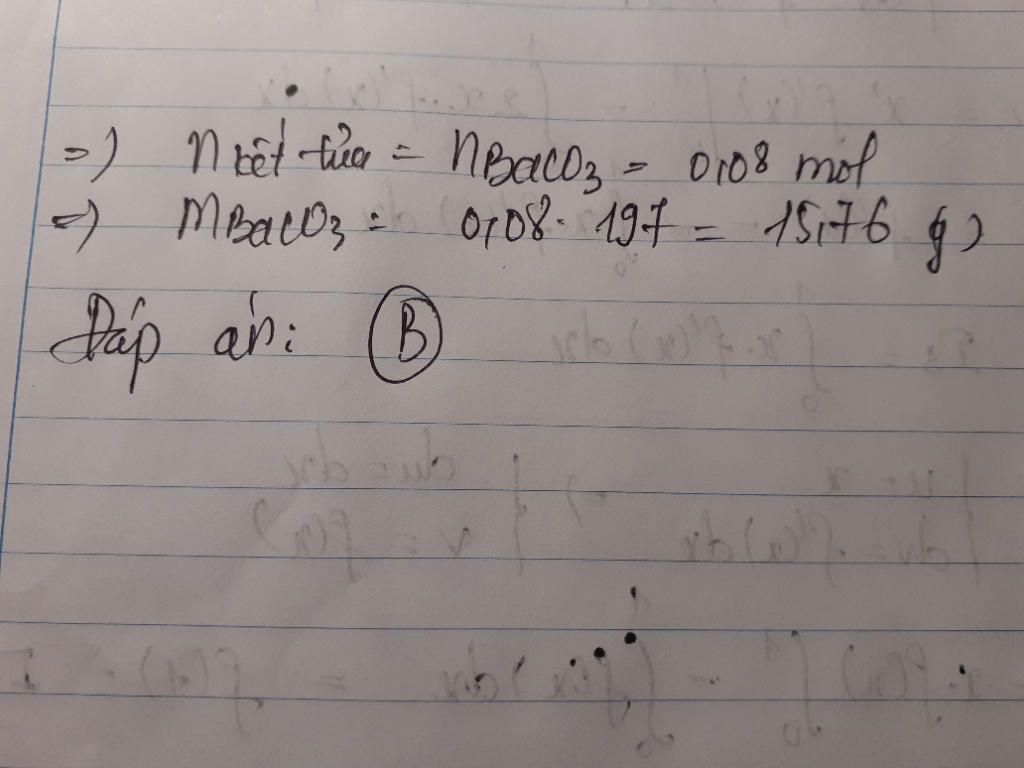 =) n kết tủa = nBaCO3 = 0,08 mol
=) mBaCO3 = 0,08. 197 = 15,76 g)
Đáp án: B